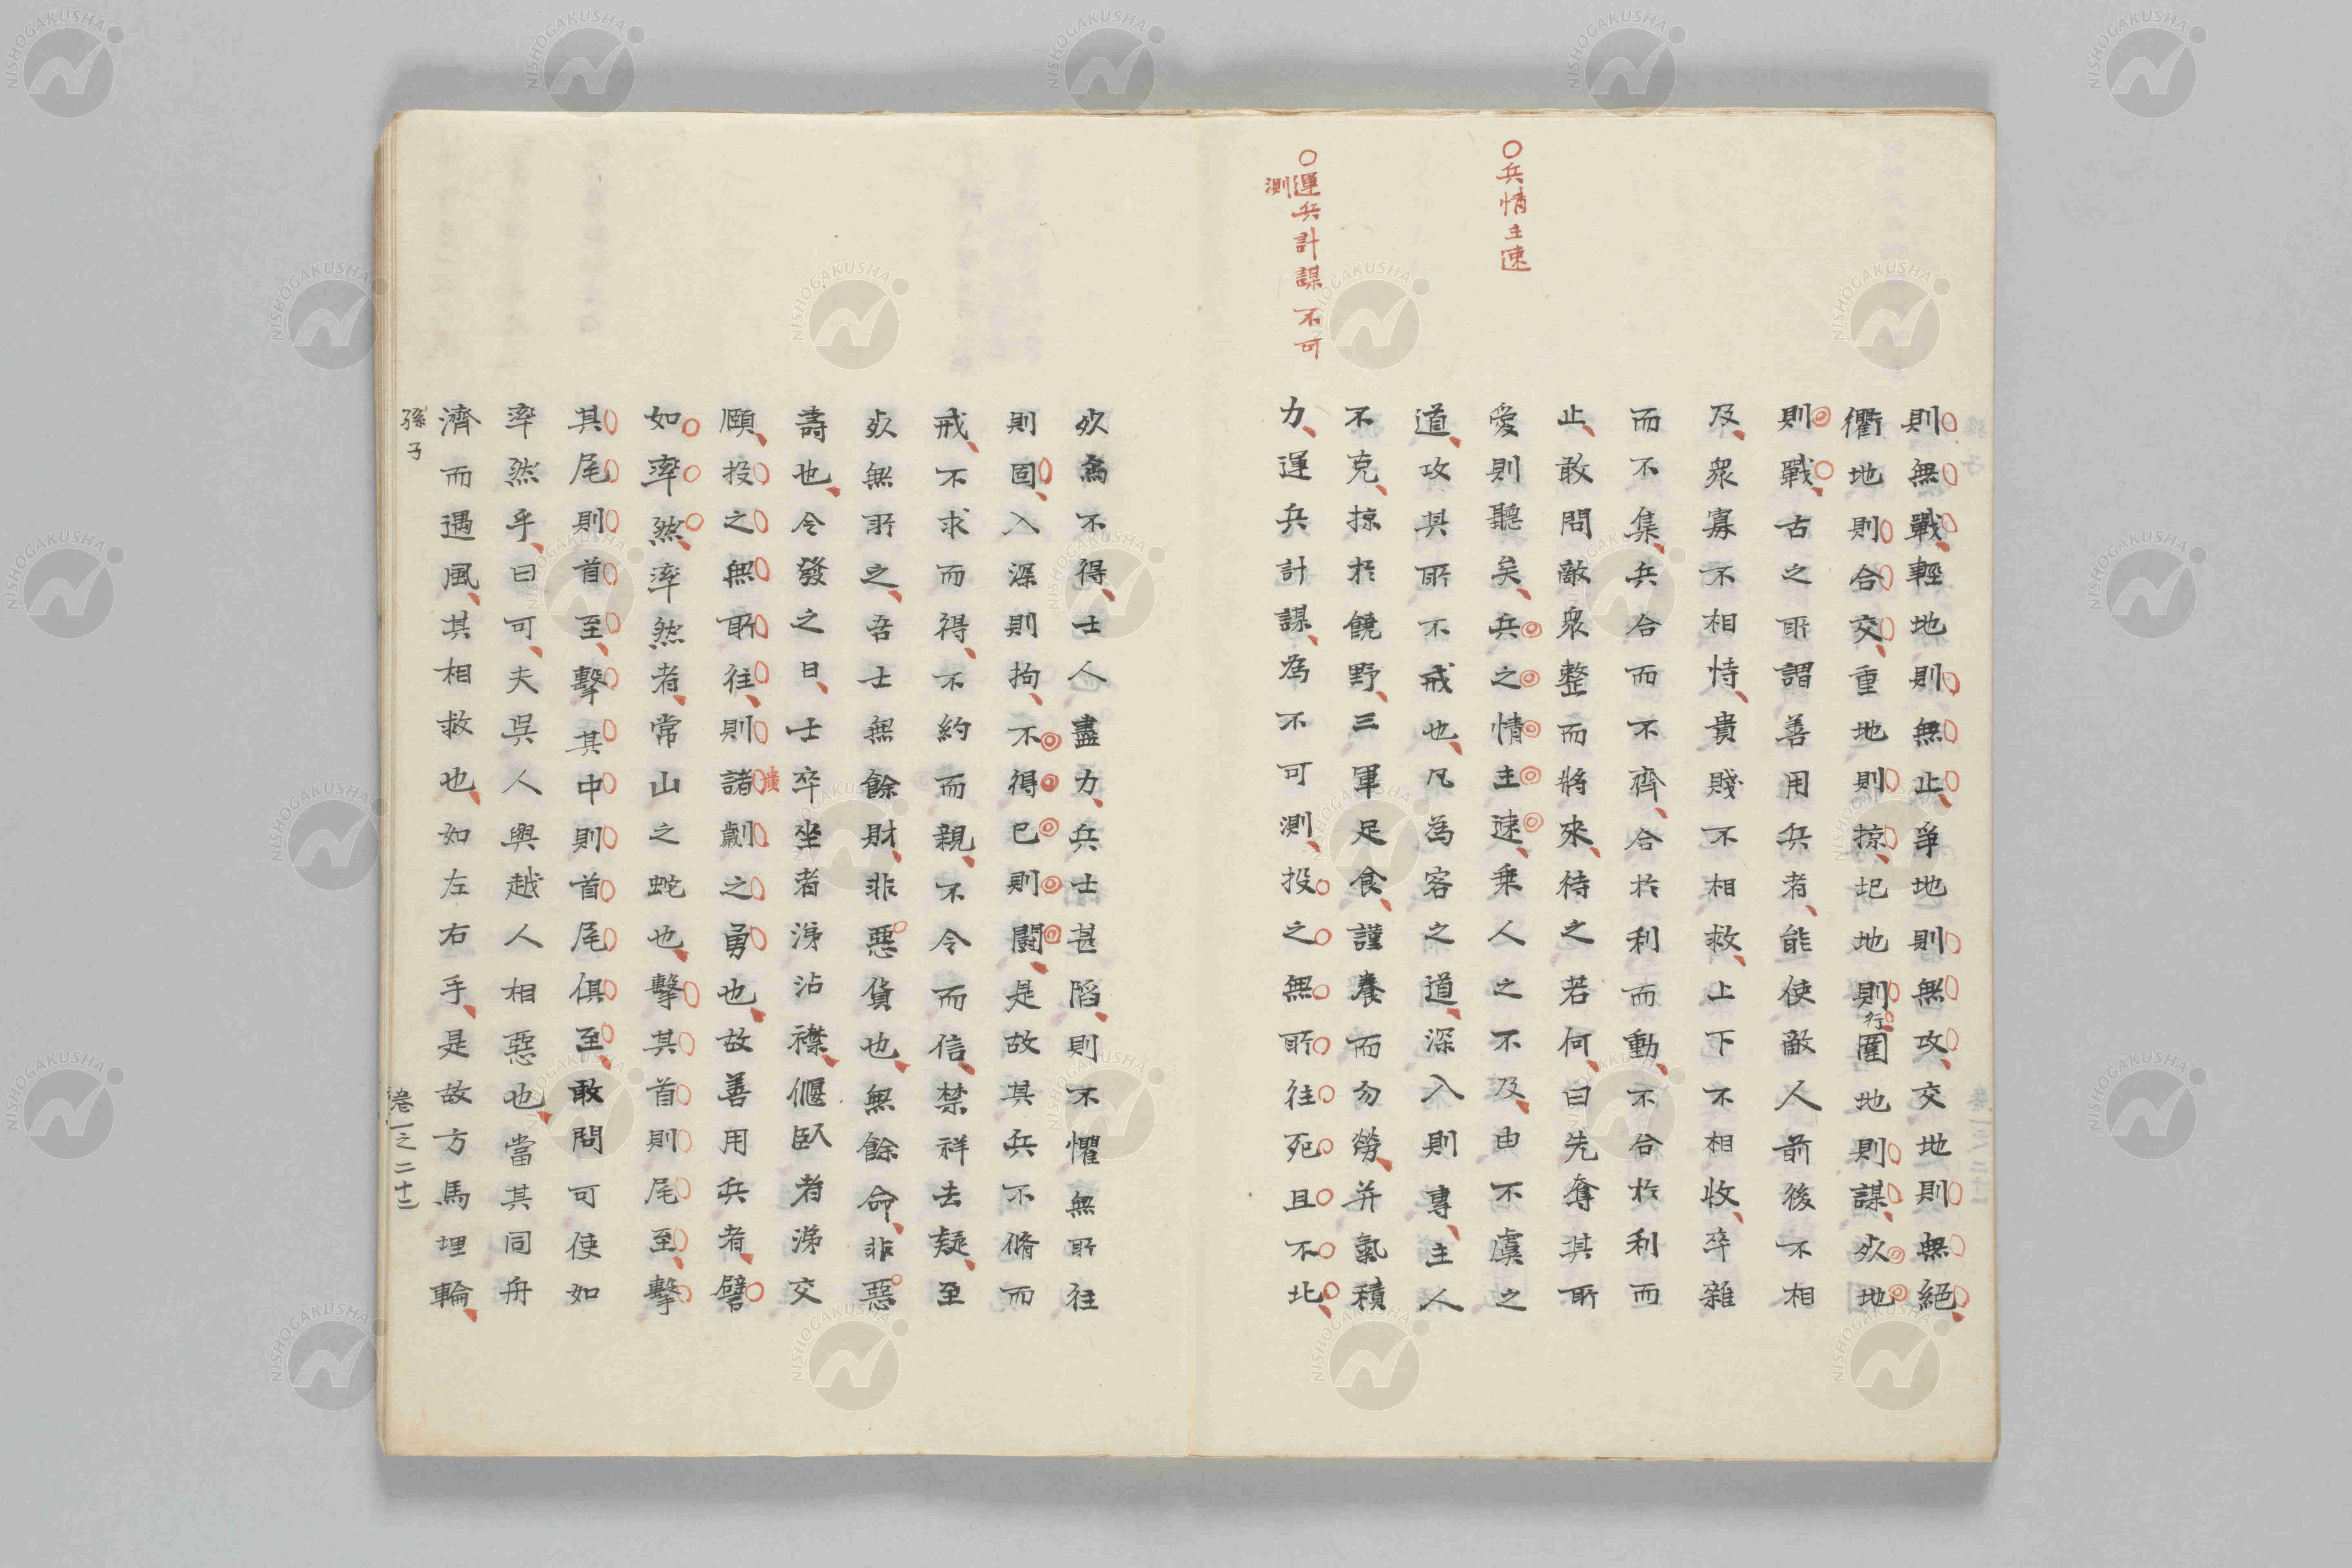 ○兵情主速
○運兵計謀不可
測
則無戰輕地則無止爭地則無攻交地則無絕
衢地則合交重地則掠圯地則行圍地則謀死地
則戰古之所謂善用兵者能使敵人前後不相
及衆寡不相恃貴賤不相救上下不相收卒雜
而不集兵合而不齊合於利而動不合於利而
止敢問敵衆整而將來待之若何曰先奪其所
愛則聽矣兵之情主速乘人之不及由不虞之
道攻其所不戒也凡為客之道深入則專主人
不克掠於饒野三軍足食謹養而勿勞并氣積
力運兵計謀為不可測投之無所往死且不北
死焉不得士人盡力兵士甚陷則不懼無所往
則固入深則拘不得已則鬪是故其兵不脩而
戒不求而得不約而親不令而信禁祥去疑至
死無所之吾士無餘財非惡貨也無餘命非惡
壽也令發之日士卒坐者涕沾襟偃臥者涕交
頤投之無所往則諸劌之勇也故善用兵者譬
如率然率然者常山之蛇也擊其首則尾至擊
其尾則首至擊其中則首尾俱至敢問可使如
率然乎曰可夫吳人與越人相惡也當其同舟
濟而遇風其相救也如左右手是故方馬埋輪
孫子
卷一之二十二
NISHOGAKUSHA